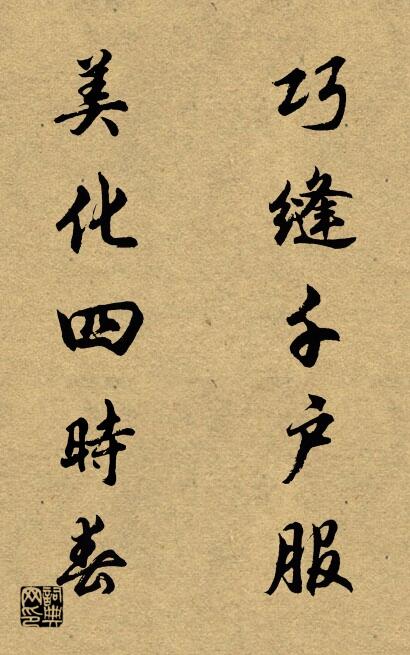 巧缝千户服
美化四時春
詞典网印